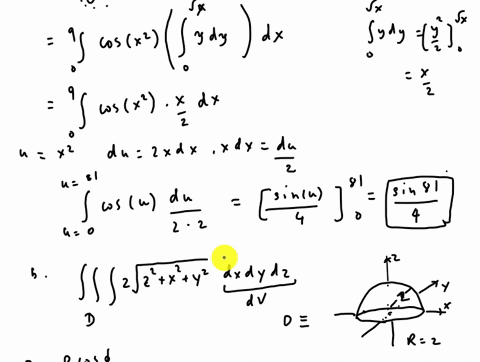 = ∫₀⁹ cos(x²) ( ∫₀^√x y dy ) dx
∫₀^√x y dy = [y²/2]₀^√x
= x/2
= ∫₀⁹ cos(x²) · x/2 dx
u = x² du = 2x dx , x dx = du/2
∫_{u=0}^{u=81} cos(u) du/(2·2) = [sin(u)/4]₀⁸¹ = sin 81/4
b. ∫∫∫_D 2√(z²+x²+y²) dx dy dz
dV
D ≡
z
y
x
2
R = 2